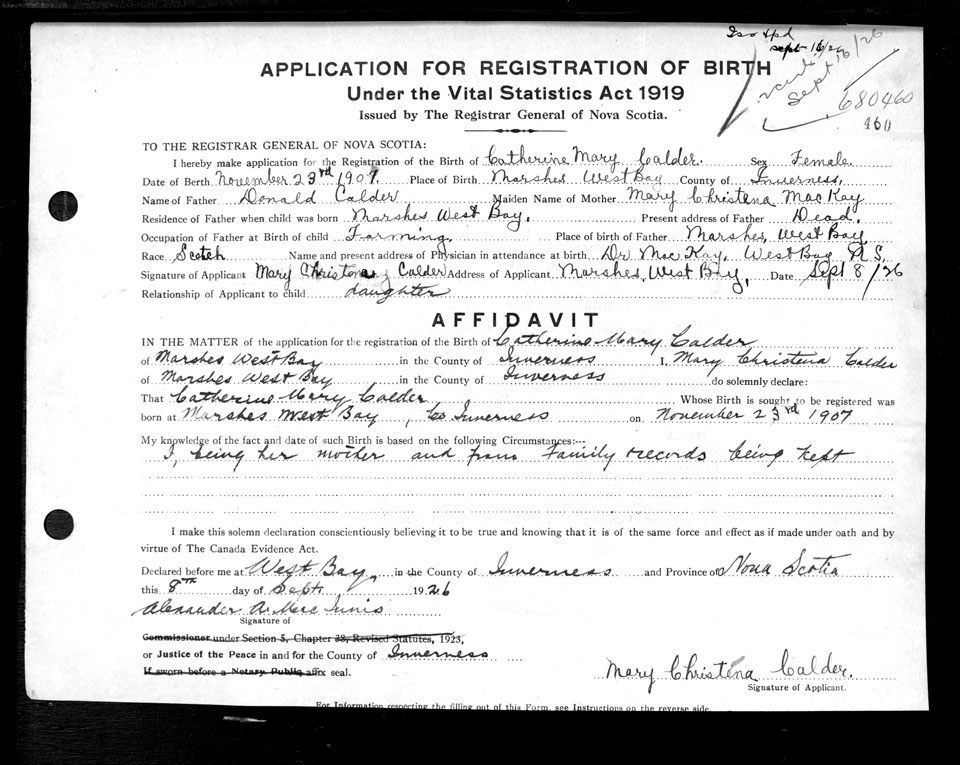 sept 16/26
Sept 16/26
680460
460
APPLICATION FOR REGISTRATION OF BIRTH
Under the Vital Statistics Act 1919
Issued by The Registrar General of Nova Scotia.
TO THE REGISTRAR GENERAL OF NOVA SCOTIA:
I hereby make application for the Registration of the Birth of Catherine Mary Calder. Sex Female.
Date of Berth November 23rd 1907. Place of Birth Marshes West Bay County of Inverness.
Name of Father Donald Calder Maiden Name of Mother Mary Christena MacKay
Residence of Father when child was born Marshes West Bay. Present address of Father Dead.
Occupation of Father at Birth of child Farming. Place of birth of Father Marshes, West Bay
Race Scotch Name and present address of Physician in attendance at birth Dr MacKay, West Bay N.S.
Signature of Applicant Mary Christena Calder Address of Applicant Marshes, West Bay, Date Sept 8/26
Relationship of Applicant to child daughter
AFFIDAVIT
IN THE MATTER of the application for the registration of the Birth of Catherine Mary Calder
of Marshes West Bay in the County of Inverness I, Mary Christena Calder
of Marshes West Bay in the County of Inverness do solemnly declare:
That Catherine Mary Calder Whose Birth is sought to be registered was
born at Marshes West Bay, Co Inverness on November 23rd 1907
My knowledge of the fact and date of such Birth is based on the following Circumstances:--
I, being her mother and from Family records being kept
I make this solemn declaration conscientiously believing it to be true and knowing that it is of the same force and effect as if made under oath and by
virtue of The Canada Evidence Act.
Declared before me at West Bay, in the County of Inverness and Province of Nova Scotia
this 8TH day of Sept. 1926
Alexander A. MacInnis
Signature of
Commissioner under Section 5, Chapter 38, Revised Statutes, 1923,
or Justice of the Peace in and for the County of Inverness
If sworn before a Notary Public affix seal.
Mary Christena Calder.
Signature of Applicant.
For Information respecting the filling out of this Form, see Instructions on the reverse side.